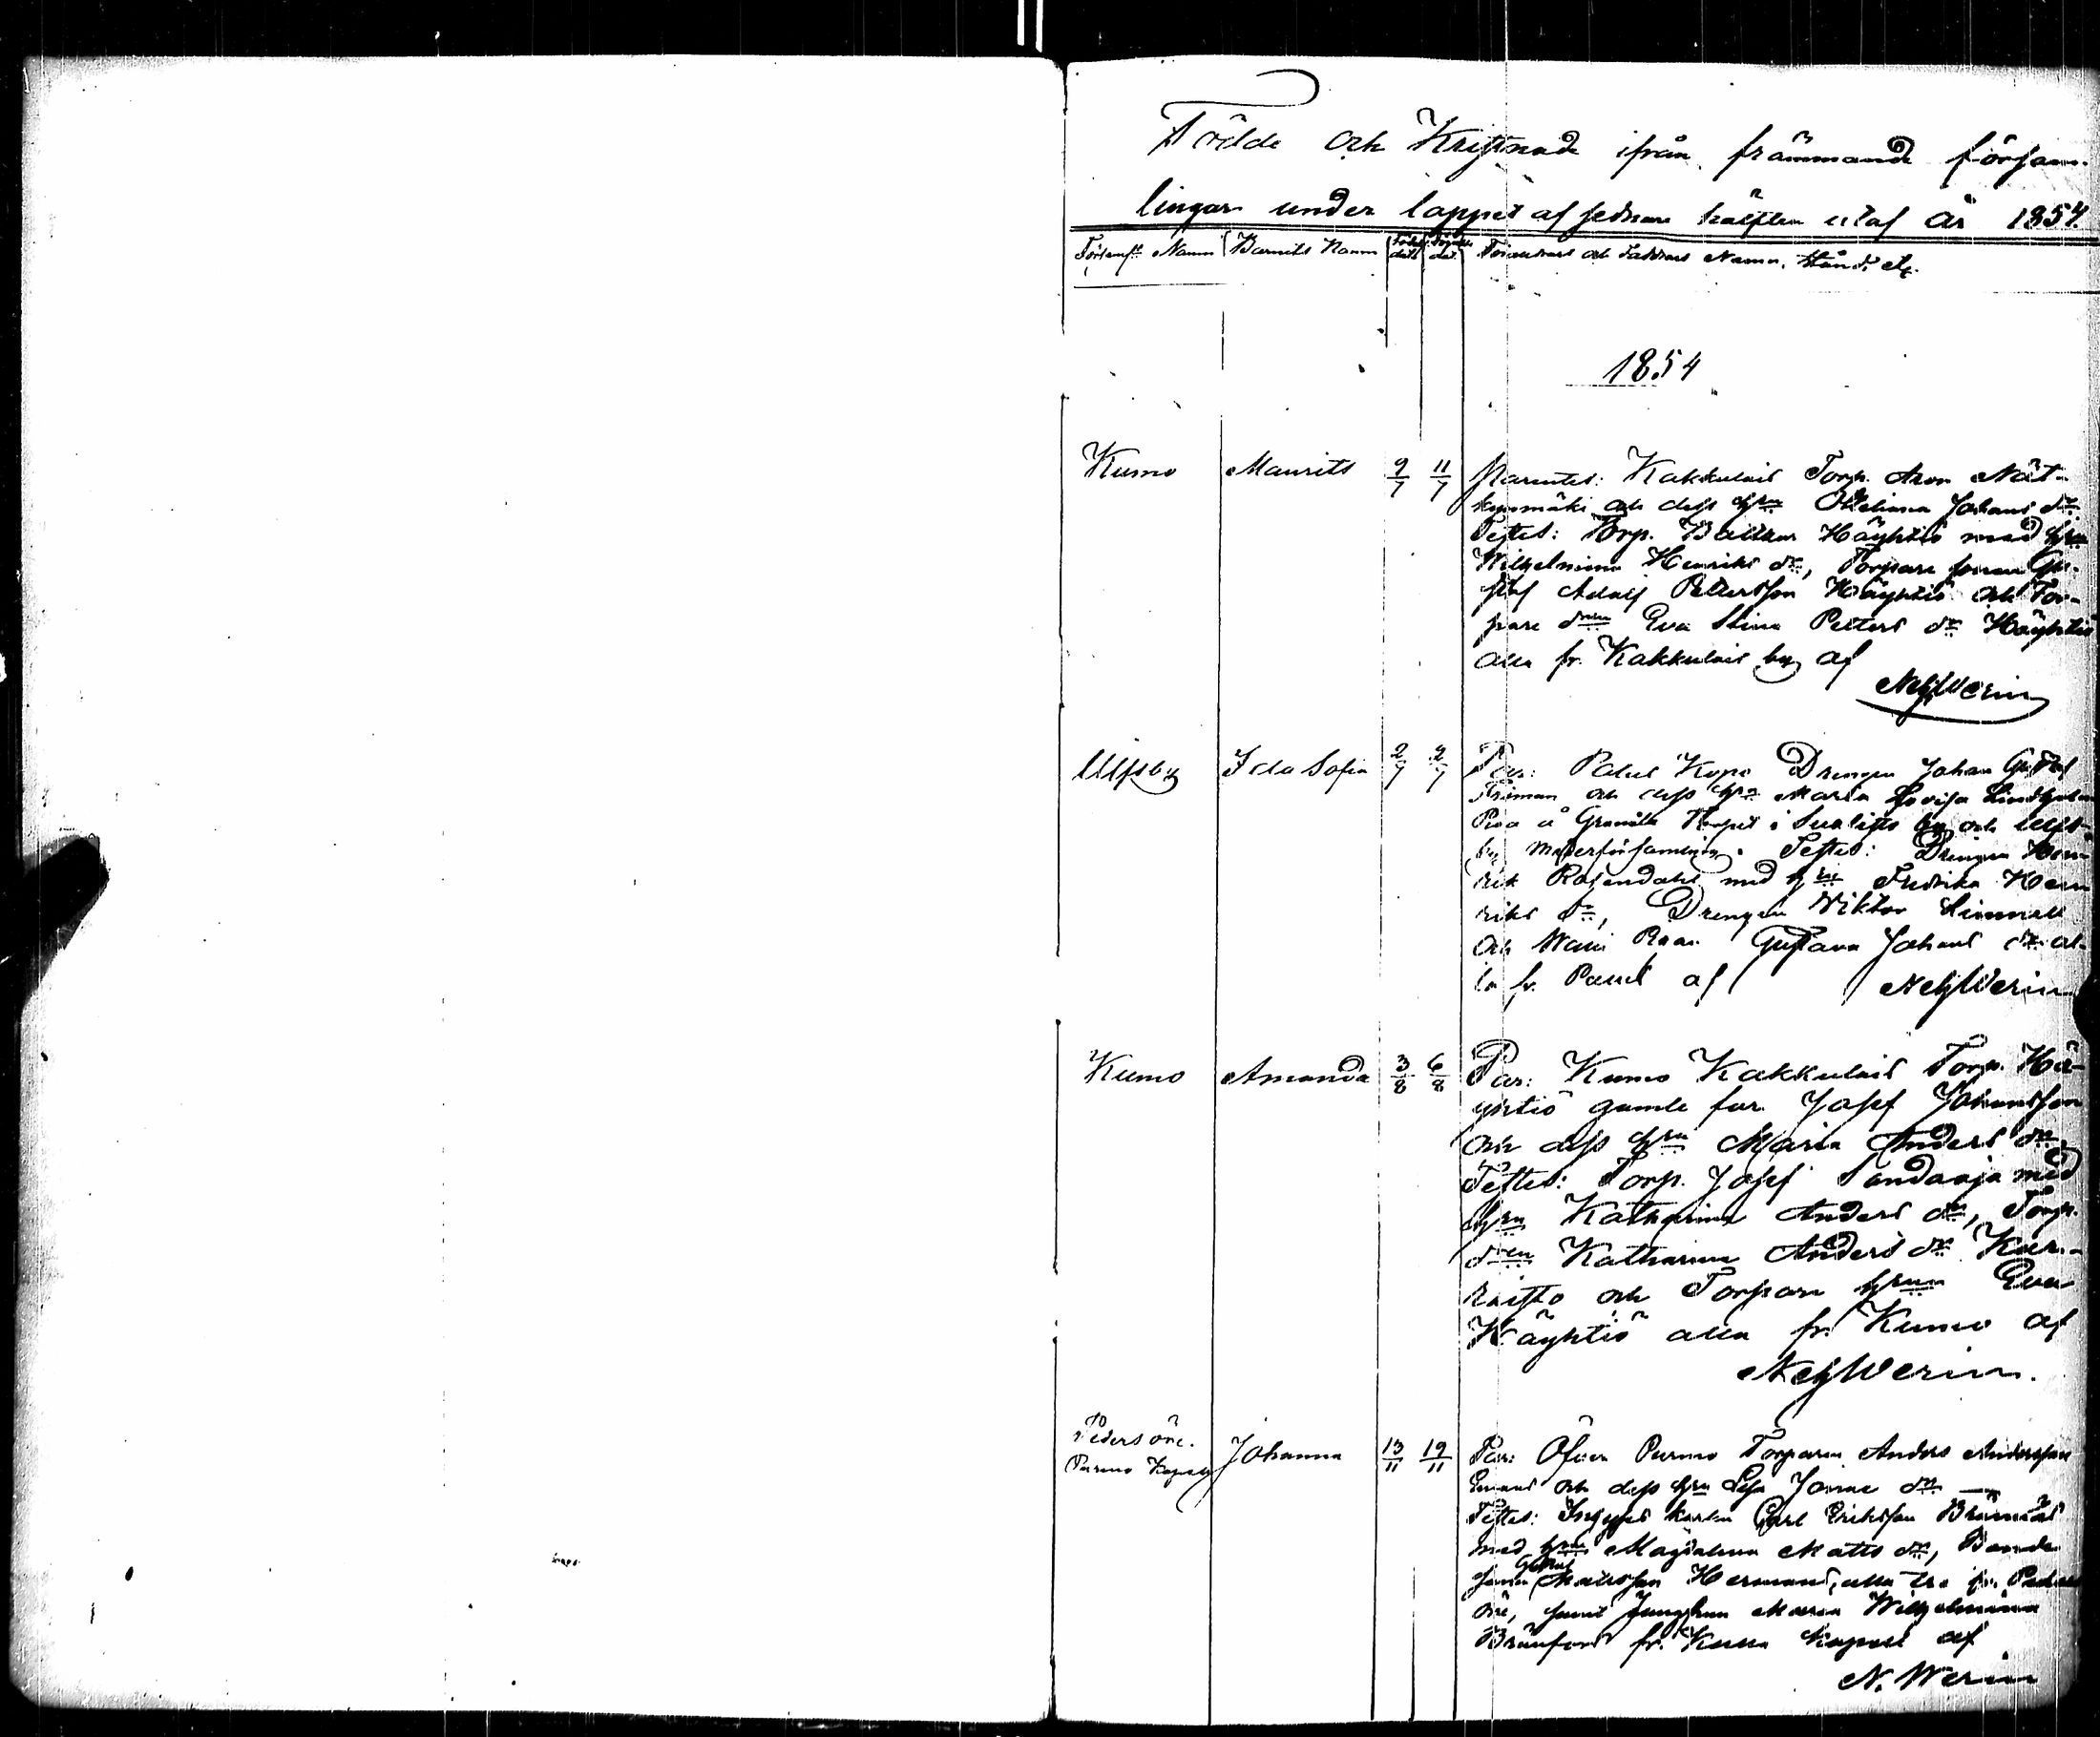 Födde och Kristnade ifrån främmande försam-
lingar under loppet af sednare hälften utaf år 1854.
Församls Namn Barnets Namn Födel. dat. Döpelse dat. Föräldrars och Faddrars Namn, stånd, etc.
1854
Kumo Maurits 9/7 11/7 Parentes: Kakkulais Torp. Aron Nät-
kynmäki och dess hru Johans dr.
Testes: Torp. Balthar Häyhtiö med hru
Wilhelmina Henriks dr, Torpare sonen Gu-
staf Adolf Pettersson Häyhtiö och Tor-
pare dren Eva Stina Petters dr Häyhtiö
alla fr. Kakkulais by af
Neh Werin
Ulfsby Ida Sofia 2/7 2/7 Par: Drengen Johan Gustaf
Friman och dess hru Maria Lovisa Lindholm
å Torpet i by och Ulfs-
by Moderförsamling. Testes: Drengen Hen-
rik Rosendahl med hru Fredrika Hen-
riks dr, Drengen Viktor
och Gustava Johans dr al-
la fr. af Neh Werin
Kumo Amanda 3/8 6/8 Par: Kumo Kakkulais Torp. Hä-
yhtiö gamle far Josef Johansson
och dess hru Maria Anders dr.
Testes: Torp. Josef Sandaoja med
hru Katharina Anders dr, Torp.
dren Katharina Anders dr Kar-
risto och Torpare hrun Eva
Häyhtiö alla fr. Kumo af
Neh Werin.
Pedersöre.
Purmo Kapell Johanna 13/11 19/11 Par: Öfver Purmo Torparen Anders Andersson
Emans och dess hru Lisa dr —
Testes: karlen Carl Eriksson
med hru Magdalena Matts dr, Bonde
sonen Gustaf Matsson Hermans, alla tre fr. Peders-
öre, samt Jungfrun Maria Wilhelmina
fr. Kapell af
N. Werin